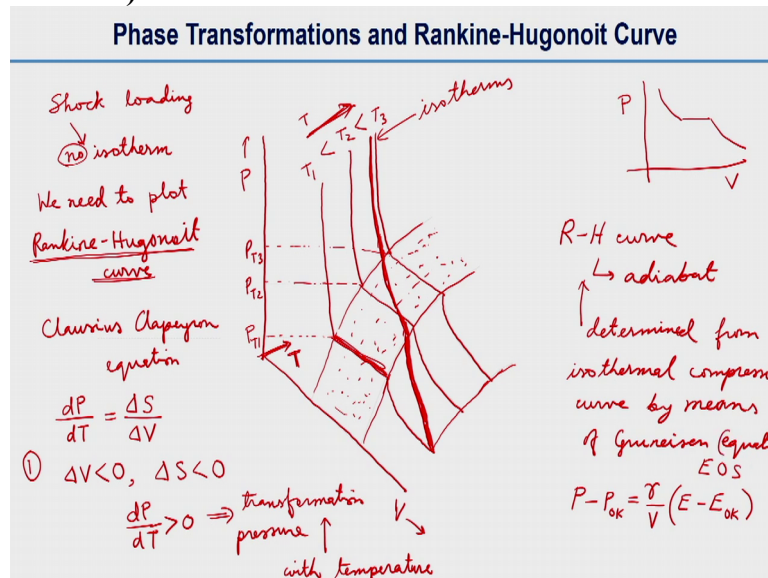 Phase Transformations and Rankine-Hugonoit Curve
Shock loading
no isotherm
We need to plot
Rankine-Hugonoit
curve
Clausius Clapeyron
equation
dP/dT = ΔS/ΔV
① ΔV<0, ΔS<0
dP/dT >0 ⇒ transformation
pressure ↑
with temperature
T
T1 < T2 < T3
isotherms
↑
P
PT3
PT2
PT1
T
V
P
V
R-H curve
↳ adiabat
determined from
isothermal compress
curve by means
of Gruneisen (equat
EOS
P-P0K = γ/V (E-E0K)